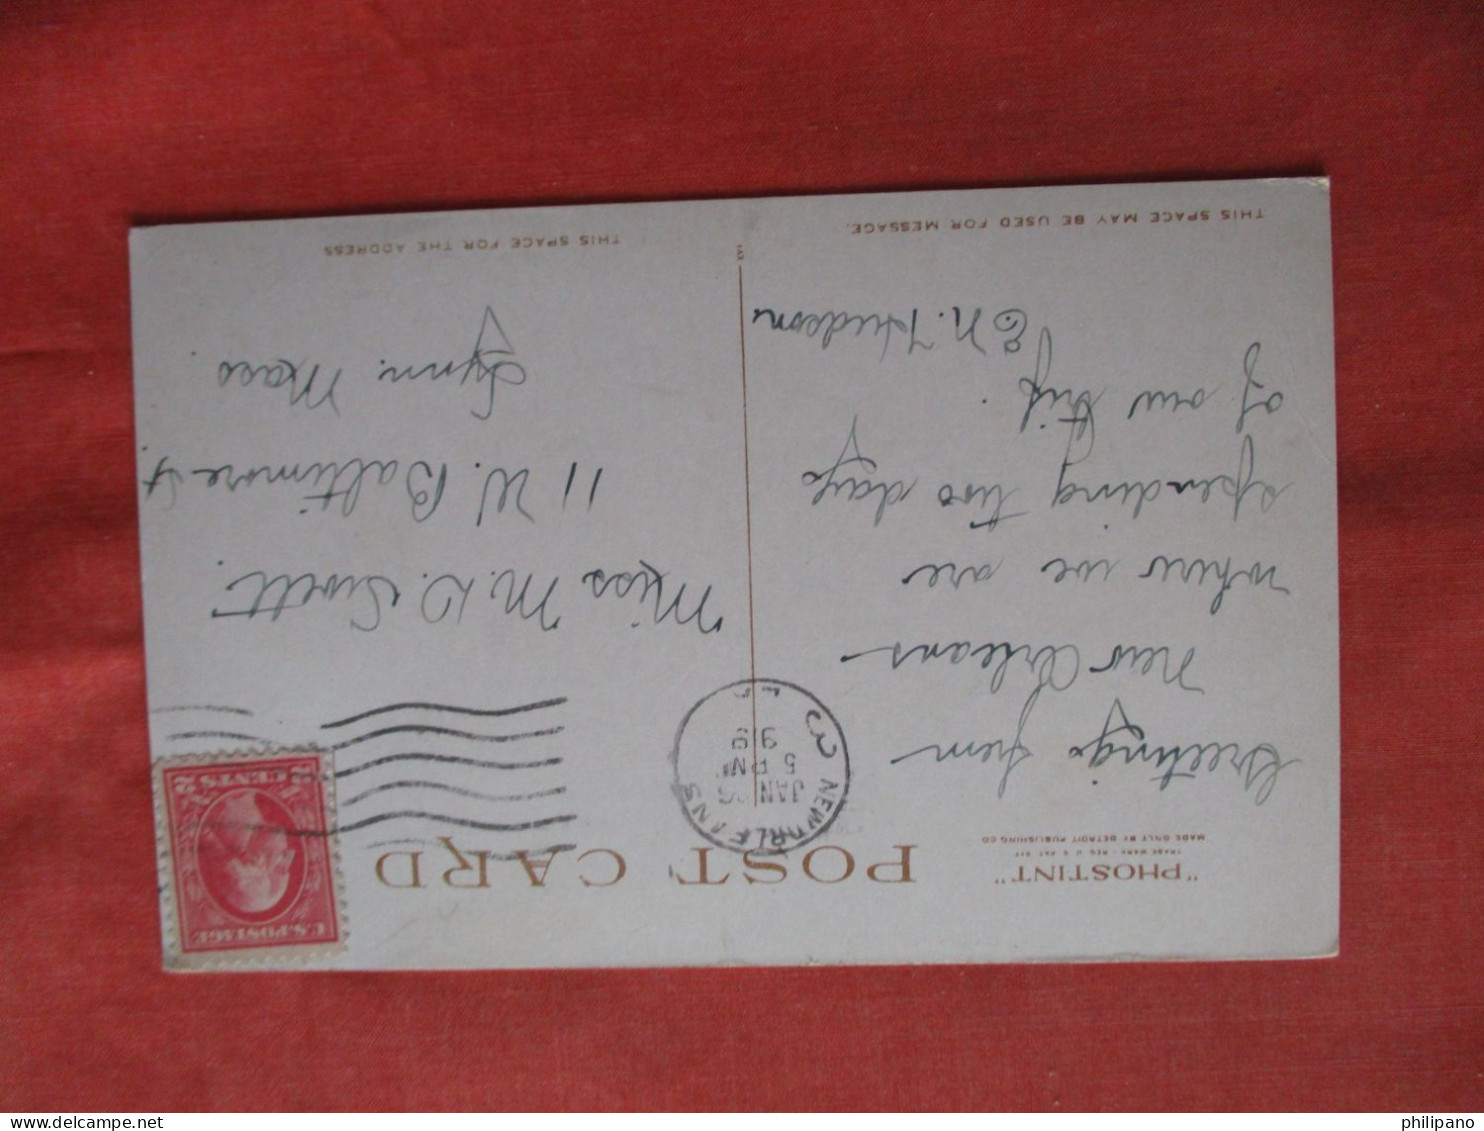 "PHOSTINT"
TRADE MARK - REG. U. S. PAT. OFF.
MADE ONLY BY DETROIT PUBLISHING CO.
POST CARD
U.S. POSTAGE
2 CENTS 2
NEW ORLEANS
JAN 26
5 PM
919
LA
3
Greetings from
New Orleans
where we are
spending two days
of our trip.
E. N. Hudson
THIS SPACE MAY BE USED FOR MESSAGE.
Miss M. D. Swett.
11 W. Baltimore St.
Lynn. Mass
THIS SPACE FOR THE ADDRESS
philipano